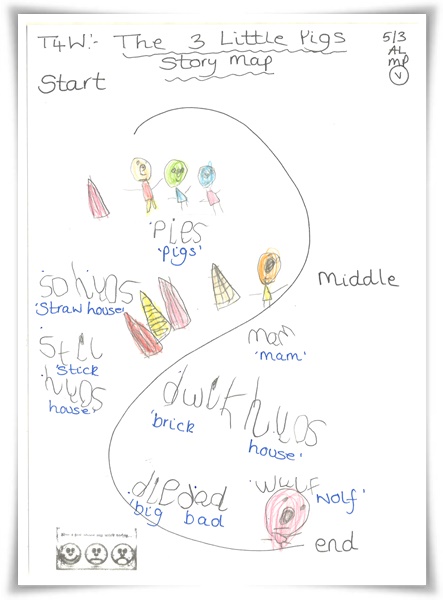 T4W:- The 3 Little Pigs
Story Map
5/3
AL
MP
V
Start
pies
'pigs'
Middle
'straw house'
mam
'mam'
'stick
hyos
house'
hyos
'brick
house'
wulf
'big bad
wolf'
end